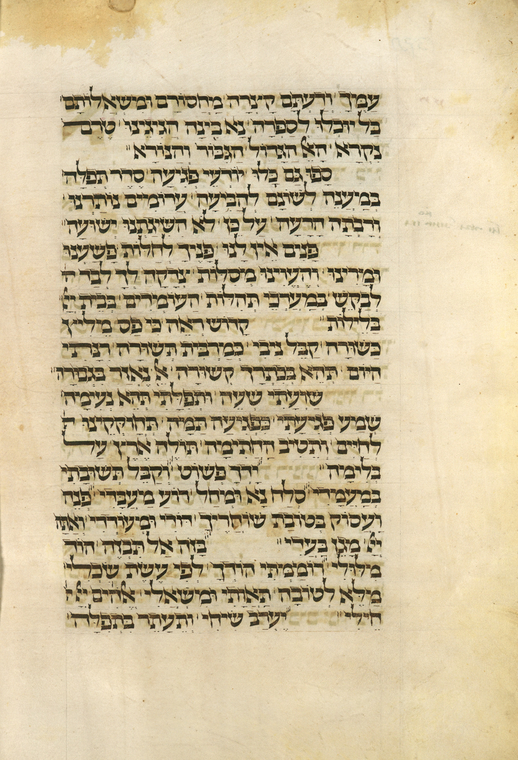 עמך ודעתם קצרה מחסורם ומשאלותם
בל יוכלו לספרה נא בינה הגיגינו טרם
נקרא האל הגדול הגבור והנורא
ספו גם כלו יודעי פגיעה סדר תפלה
במענה לשונם להביעה ערומים נותרנו
ורבתה הרעה על כן לא השיגתנו ישועה
פנים אין לנו פניך לחלות פשענו
ומרינו והעוינו מסלות וצדקה לך לבד
לבקש במערבי תהלות העומדים בבית יי
בלילות קדוש ראה כי פס מליץ
כשורה קבל ניבי כמרבית תשורה רנתי
היום תהא בכתרך קשורה אל נאזר בגבורה
שועתי שעה ותפלתי תהא נעימה
שמע פגיעתי כפגיעה תמה תחוקקנו
לחיים ותטיב החתימה תולה ארץ על
בלימה ידך פשוט וקבל תשובתי
במעמדי סלח נא ומחל רוע מעבדי פנה
ועסוק בטובת שוחריך דודי ומעודדי ואתה
יי מגן בעדי מזה אל תבזה הוד
מלולי רוממתי חודך לפי עשת שכלי
מלא לטובה תאותי ומשאלי אלהים יי
חילי יערב שיחי ותעתר בתפלה